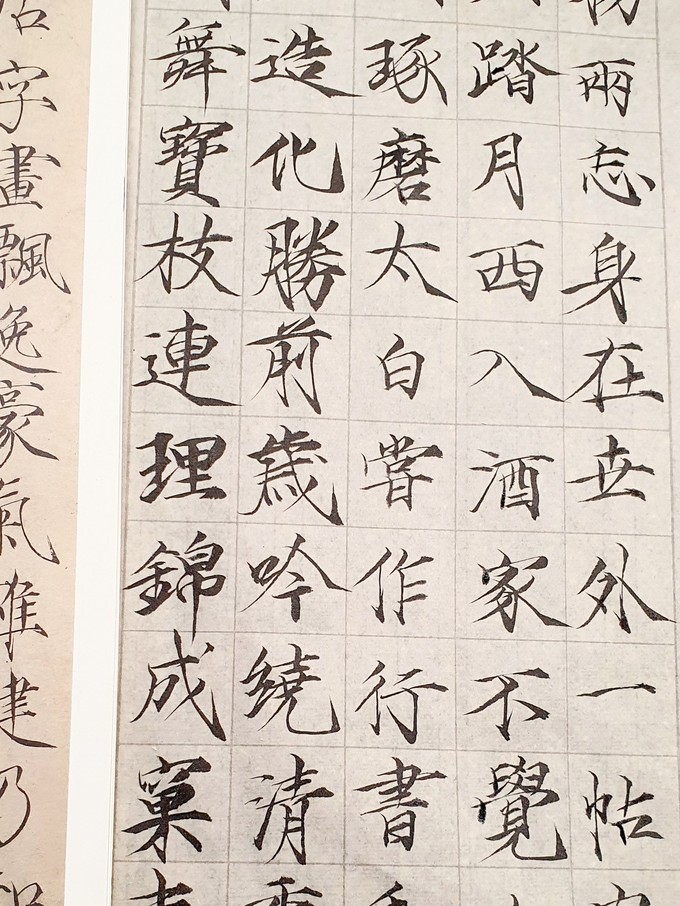 兩忘身在世外一帖
踏月西入酒家不覺
琢磨太白嘗作行書
造化勝前歲吟繞清
舞寶枝連理錦成窠
字畫飄逸豪氣雄健乃